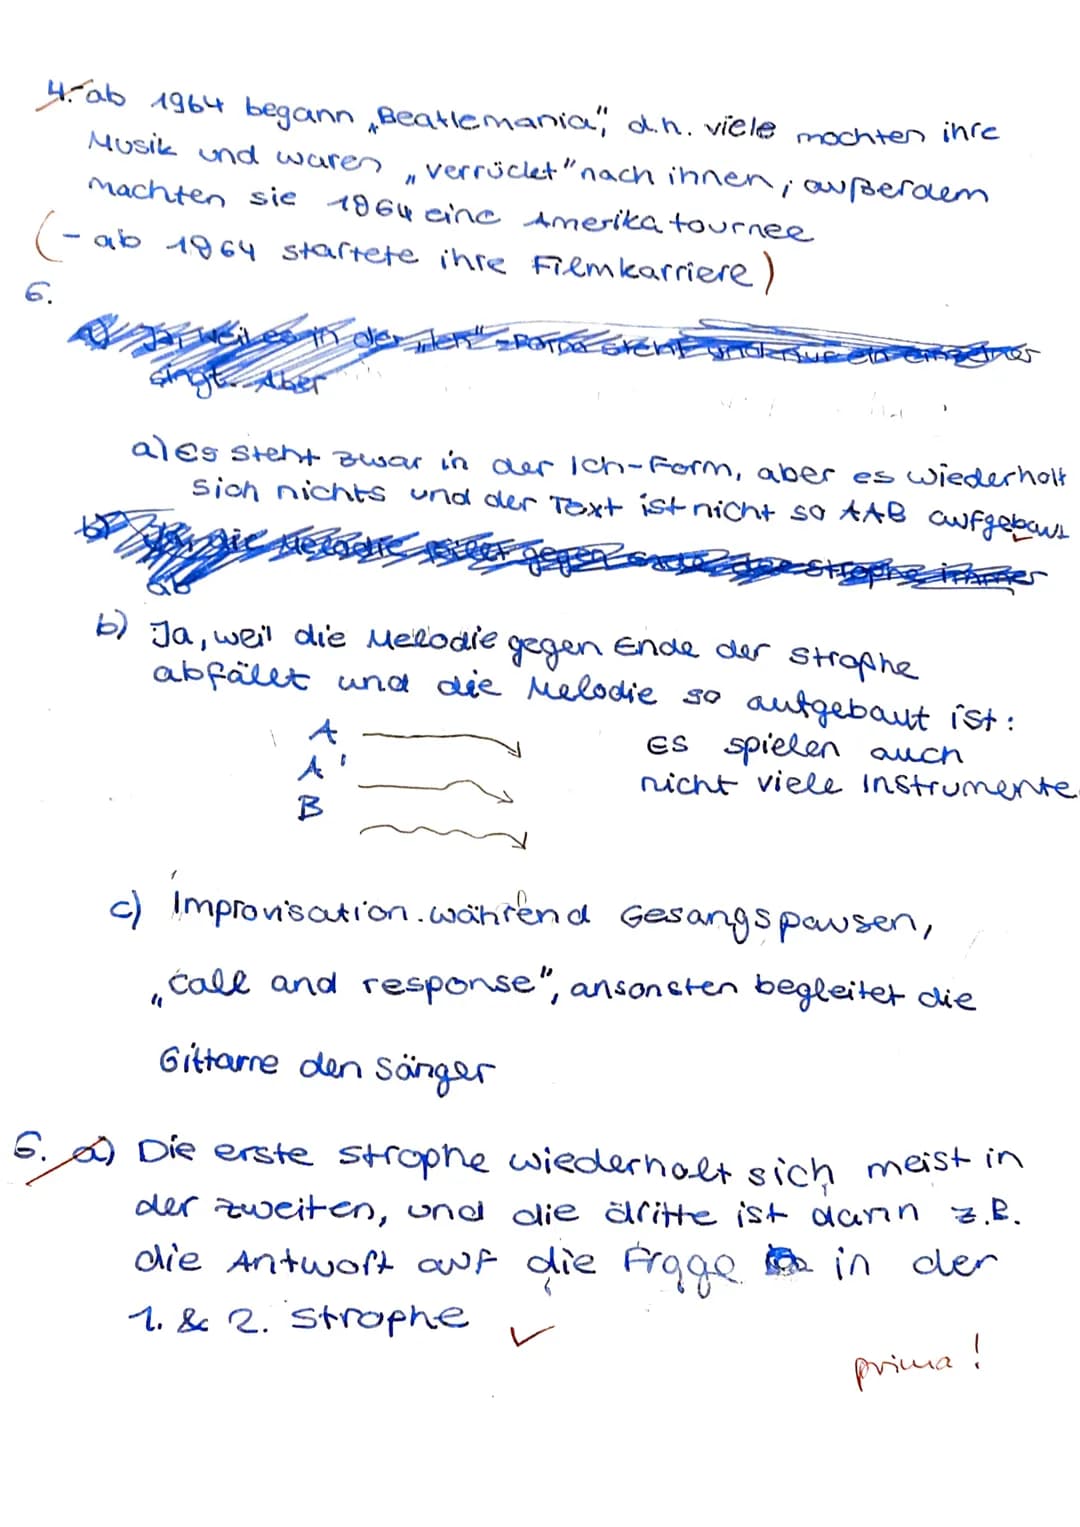 4. - ab 1964 begann „Beatlemania", d.h. viele mochten ihre
Musik und waren „verrückt" nach ihnen, außerdem
machten sie 1964 eine Amerikatournee
(- ab 1964 startete ihre Filmkarriere)
6.
a) Ja, weil es in der „Ich"-Form steht und nur ein einzelner
singt. Aber
a) Es steht zwar in der Ich-Form, aber es wiederholt
sich nichts und der Text ist nicht so AAB aufgebaut
b) Ja, die Melodie fällt gegen Ende der Strophe immer
ab
b) Ja, weil die Melodie gegen Ende der Strophe
abfällt und die Melodie so aufgebaut ist:
A
A'
B
Es spielen auch
nicht viele Instrumente.
c) Improvisation während Gesangspausen,
„call and response", ansonsten begleitet die
Gittarre den Sänger
6. a) Die erste Strophe wiederholt sich meist in
der zweiten, und die dritte ist dann z.B.
die Antwort auf die Frage in der
1. & 2. Strophe ✓
prima!